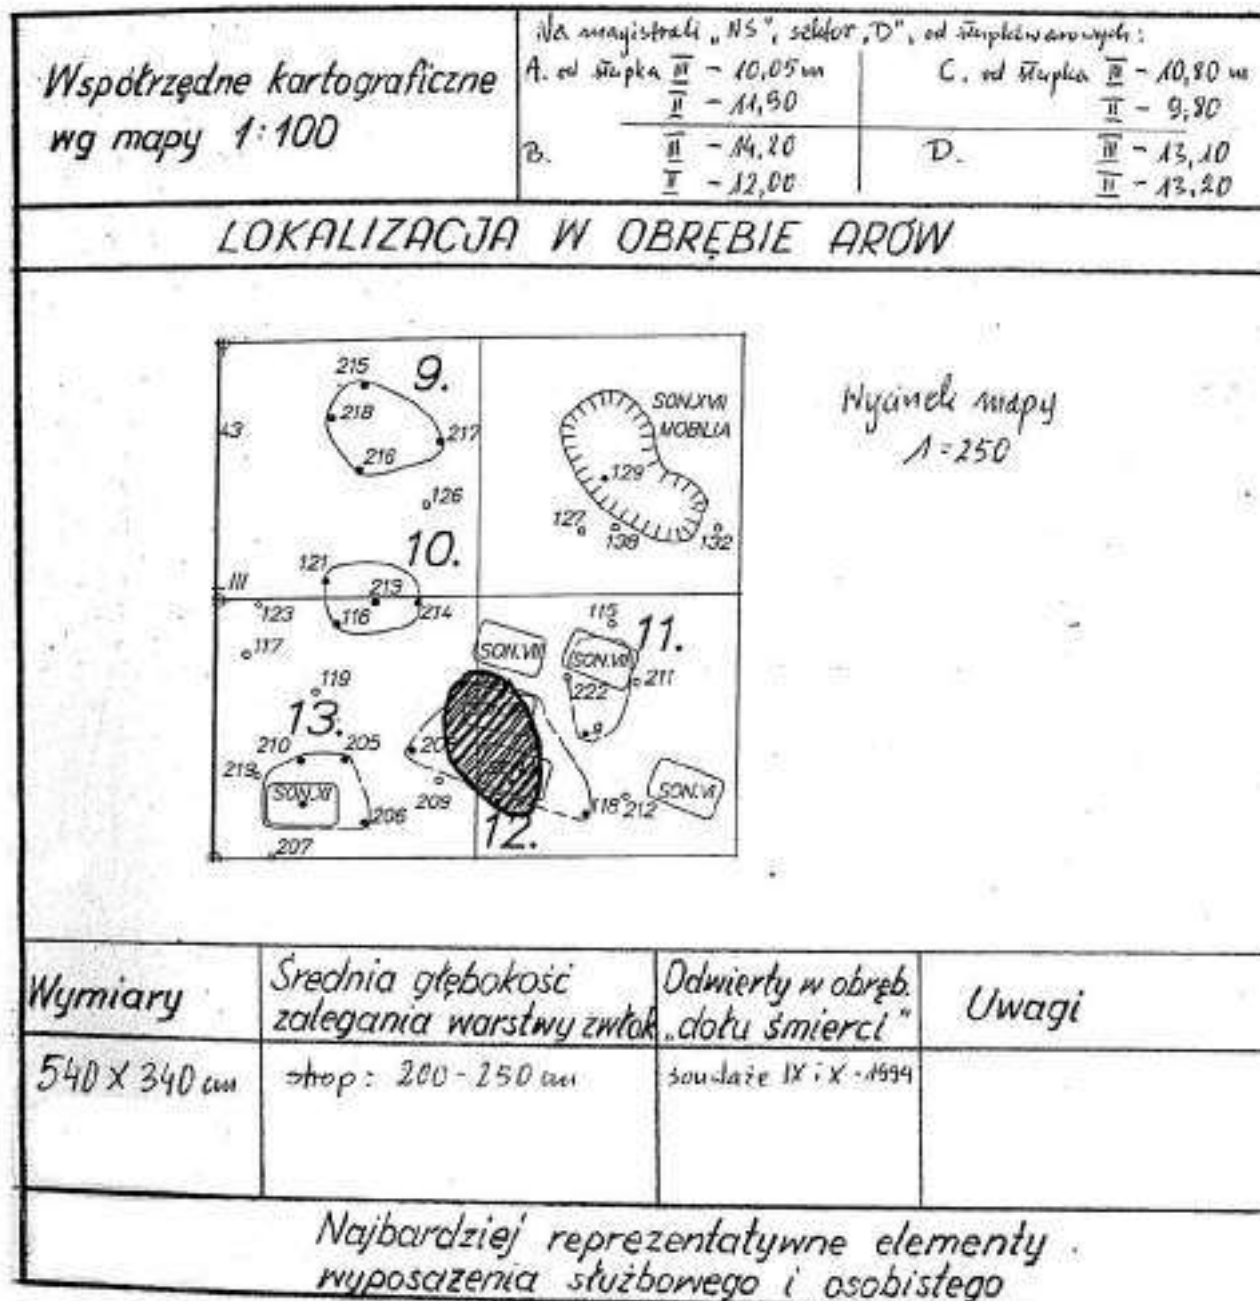 Współrzędne kartograficzne
wg mapy 1:100
Na magistrali „NS", sektor „D", od słupków arowych:
A. od słupka III - 10,05 m
II - 11,90
B. III - 14,20
II - 12,00
C. od słupka III - 10,80 m
II - 9,80
D. III - 13,10
II - 13,20
LOKALIZACJA W OBRĘBIE ARÓW
215
9.
218
43
217
216
126
SON.XVII
MOBILIA
129
127
138
132
10.
121
III
213
123
116
214
117
115
11.
SON.VII
SON.VIII
222
211
119
13.
210
205
219
SON.XII
206
209
207
12.
118
212
SON.VI
Wycinek mapy
1=250
Wymiary
Średnia głębokość
zalegania warstwy zwłok
Odwierty w obręb.
„dołu śmierci"
Uwagi
540 X 340 cm
strop: 200-250 cm
sondaże IX i X-1994
Najbardziej reprezentatywne elementy
wyposażenia służbowego i osobistego